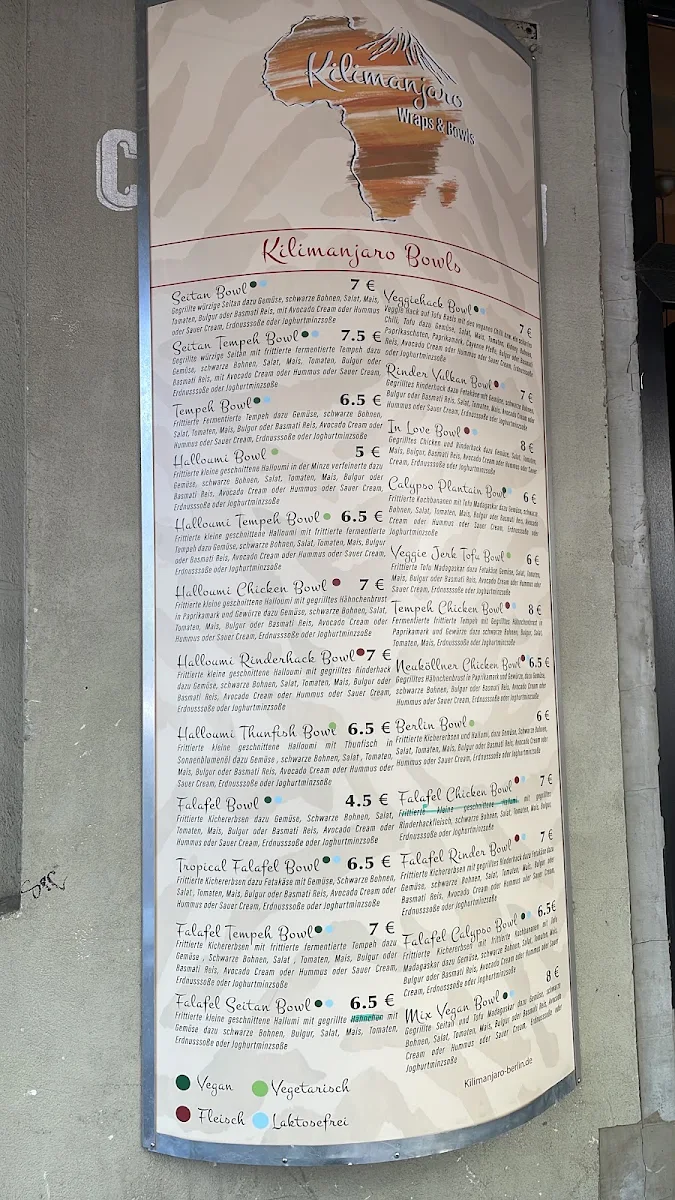 C
Kilimanjaro
Wraps & Bowls
Kilimanjaro Bowls
Seitan Bowl 7 €
Gegrillte würzige Seitan dazu Gemüse, schwarze Bohnen, Salat, Mais,
Tomaten, Bulgur oder Basmati Reis, mit Avocado Cream oder Hummus
oder Sauer Cream, Erdnusssoße oder Joghurtminzsoße
Seitan Tempeh Bowl 7.5 €
Gegrillte würzige Seitan mit frittierter fermentierte Tempeh dazu
Gemüse, schwarze Bohnen, Salat, Mais, Tomaten, Bulgur oder
Basmati Reis, mit Avocado Cream oder Hummus oder Sauer Cream,
Erdnusssoße oder Joghurtminzsoße
Tempeh Bowl 6.5 €
Frittierte Fermentierte Tempeh dazu Gemüse, schwarze Bohnen,
Salat, Tomaten, Mais, Bulgur oder Basmati Reis, Avocado Cream oder
Hummus oder Sauer Cream, Erdnusssoße oder Joghurtminzsoße
Halloumi Bowl 5 €
Frittierte kleine geschnittene Halloumi in der Minze verfeinerte dazu
Gemüse, schwarze Bohnen, Salat, Tomaten, Mais, Bulgur oder
Basmati Reis, Avocado Cream oder Hummus oder Sauer Cream,
Erdnusssoße oder Joghurtminzsoße
Halloumi Tempeh Bowl 6.5 €
Frittierte kleine geschnittene Halloumi mit frittierte fermentierte
Tempeh dazu Gemüse, schwarze Bohnen, Salat, Tomaten, Mais, Bulgur
oder Basmati Reis, Avocado Cream oder Hummus oder Sauer Cream,
Erdnusssoße oder Joghurtminzsoße
Halloumi Chicken Bowl 7 €
Frittierte kleine geschnittene Halloumi mit gegrilltes Hähnchenbrust
in Paprikamark und Gewürze dazu Gemüse, schwarze Bohnen, Salat,
Tomaten, Mais, Bulgur oder Basmati Reis, Avocado Cream oder
Hummus oder Sauer Cream, Erdnusssoße oder Joghurtminzsoße
Halloumi Rinderhack Bowl 7 €
Frittierte kleine geschnittene Halloumi mit gegrilltes Rinderhack
dazu Gemüse, schwarze Bohnen, Salat, Tomaten, Mais, Bulgur oder
Basmati Reis, Avocado Cream oder Hummus oder Sauer Cream,
Erdnusssoße oder Joghurtminzsoße
Halloumi Thunfish Bowl 6.5 €
Frittierte kleine geschnittene Halloumi mit Thunfisch in
Sonnenblumenöl dazu Gemüse , schwarze Bohnen, Salat , Tomaten,
Mais, Bulgur oder Basmati Reis, Avocado Cream oder Hummus oder
Sauer Cream, Erdnusssoße oder Joghurtminzsoße
Falafel Bowl 4.5 €
Frittierte Kichererbsen dazu Gemüse, Schwarze Bohnen, Salat,
Tomaten, Mais, Bulgur oder Basmati Reis, Avocado Cream oder
Hummus oder Sauer Cream, Erdnusssoße oder Joghurtminzsoße
Tropical Falafel Bowl 6.5 €
Frittierte Kichererbsen dazu Fetakäse mit Gemüse, Schwarze Bohnen,
Salat, Tomaten, Mais, Bulgur oder Basmati Reis, Avocado Cream oder
Hummus oder Sauer Cream, Erdnusssoße oder Joghurtminzsoße
Falafel Tempeh Bowl 7 €
Frittierte Kichererbsen mit frittierte fermentierte Tempeh dazu
Gemüse , Schwarze Bohnen, Salat , Tomaten, Mais, Bulgur oder
Basmati Reis, Avocado Cream oder Hummus oder Sauer Cream,
Erdnusssoße oder Joghurtminzsoße
Falafel Seitan Bowl 6.5 €
Frittierte kleine geschnittene Hallumi mit gegrillte Hähnchen mit
Gemüse dazu schwarze Bohnen, Bulgur, Salat, Mais, Tomaten,
Erdnusssoße oder Joghurtminzsoße
Veggiehack Bowl 7 €
Veggie Hack auf Tofu Basis mit des veganes Chili
Chili, Tofu dazu Gemüse, Salat, Mais, Tomaten, Bohnen,
Paprikaschoten, Paprikamark, Cayenne Pfeffer, Bulgur oder Basmati
Reis, Avocado Cream oder Hummus oder Sauer Cream, Erdnusssoße
oder Joghurtminzsoße
Rinder Vulkan Bowl 7 €
Gegrilltes Rinderhack dazu Fetakäse mit Gemüse, schwarze Bohnen,
Bulgur oder Basmati Reis, Salat, Tomaten, Mais, Avocado Cream oder
Hummus oder Sauer Cream, Erdnusssoße oder Joghurtminzsoße
In Love Bowl 8 €
Gegrilltes Chicken und Rinderhack dazu Gemüse, Salat, Tomaten,
Mais, Bulgur, Basmati Reis, Avocado Cream oder Hummus oder Sauer
Cream, Erdnusssoße oder Joghurtminzsoße
Calypso Plantain Bowl 6 €
Frittierte Kochbananen mit Tofu Madagaskar dazu Gemüse, schwarze
Bohnen, Salat, Tomaten, Mais, Bulgur oder Basmati Reis, Avocado
Cream oder Hummus oder Sauer Cream, Erdnusssoße oder
Joghurtminzsoße
Veggie Jerk Tofu Bowl 6 €
Frittierte Tofu Madagaskar dazu Fetakäse Gemüse, Salat, Tomaten,
Mais, Bulgur oder Basmati Reis, Avocado Cream oder Hummus oder
Sauer Cream, Erdnusssoße oder Joghurtminzsoße
Tempeh Chicken Bowl 8 €
Fermentierte frittierte Tempeh mit Gegrilltes Hähnchenbrust in
Paprikamark und Gewürze dazu schwarze Bohnen, Bulgur, Salat,
Tomaten, Mais, Erdnusssoße oder Joghurtminzsoße
Neuköllner Chicken Bowl 6.5 €
Gegrilltes Hähnchenbrust in Paprikamark und Gewürze, dazu Gemüse,
schwarze Bohnen, Bulgur oder Basmati Reis, Salat, Tomaten, Avocado
Cream oder Hummus oder Sauer Cream, Erdnusssoße oder Joghurtminzsoße
Berlin Bowl 6 €
Frittierte Kichererbsen und Hallumi, dazu Gemüse, Schwarze Bohnen,
Salat, Tomaten, Mais, Bulgur oder Basmati Reis, Avocado Cream oder
Hummus oder Sauer Cream, Erdnusssoße oder Joghurtminzsoße
Falafel Chicken Bowl 7 €
Frittierte kleine geschnittene Hallumi mit gegrilltes
Rinderhackfleisch, schwarze Bohnen, Salat, Tomaten, Mais, Bulgur,
Erdnusssoße oder Joghurtminzsoße
Falafel Rinder Bowl 7 €
Frittierte Kichererbsen mit gegrilltes Rinderhack dazu Fetakäse dazu
Gemüse, schwarze Bohnen, Salat, Tomaten, Mais, Bulgur oder
Basmati Reis, Avocado Cream oder Hummus oder Sauer Cream,
Erdnusssoße oder Joghurtminzsoße
Falafel Calypso Bowl 6.5€
Frittierte Kichererbsen mit frittierte Kochbananen mit Tofu
Madagaskar dazu Gemüse, schwarze Bohnen, Salat, Tomaten, Mais,
Bulgur oder Basmati Reis, Avocado Cream oder Hummus oder Sauer
Cream, Erdnusssoße oder Joghurtminzsoße
Mix Vegan Bowl 8 €
Gegrillte Seitan und Tofu Madagaskar dazu Gemüse, schwarze
Bohnen, Salat, Tomaten, Mais, Bulgur oder Basmati Reis, Avocado
Cream oder Hummus oder Sauer Cream, Erdnusssoße oder
Joghurtminzsoße
Kilimanjaro-berlin.de
Vegan Vegetarisch
Fleisch Laktosefrei